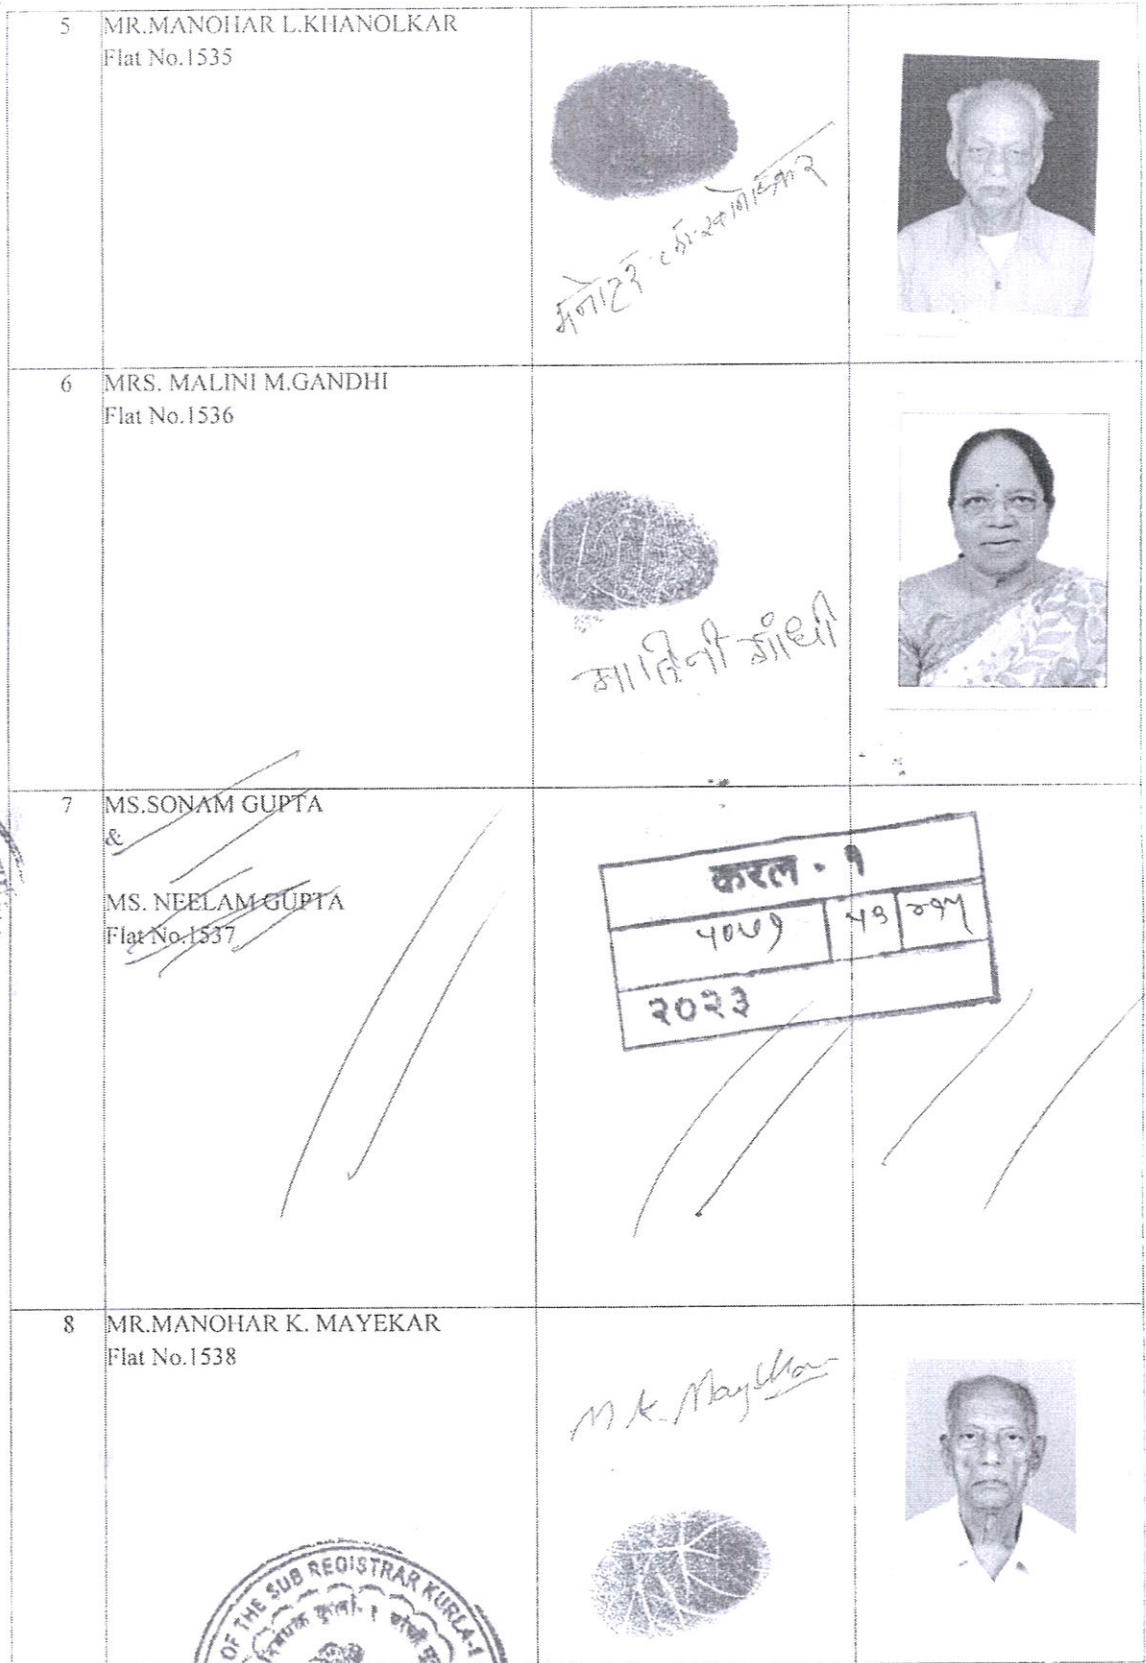 5 MR.MANOHAR L.KHANOLKAR
Flat No.1535
मनोहर
6 MRS. MALINI M.GANDHI
Flat No.1536
मालिनी गांधी
7 MS.SONAM GUPTA
&
MS. NEELAM GUPTA
Flat No.1537
करल - १
५०७१ ५१ २१५
२०२३
8 MR.MANOHAR K. MAYEKAR
Flat No.1538
M.K. Mayekar
OF THE SUB REGISTRAR KURLA-1